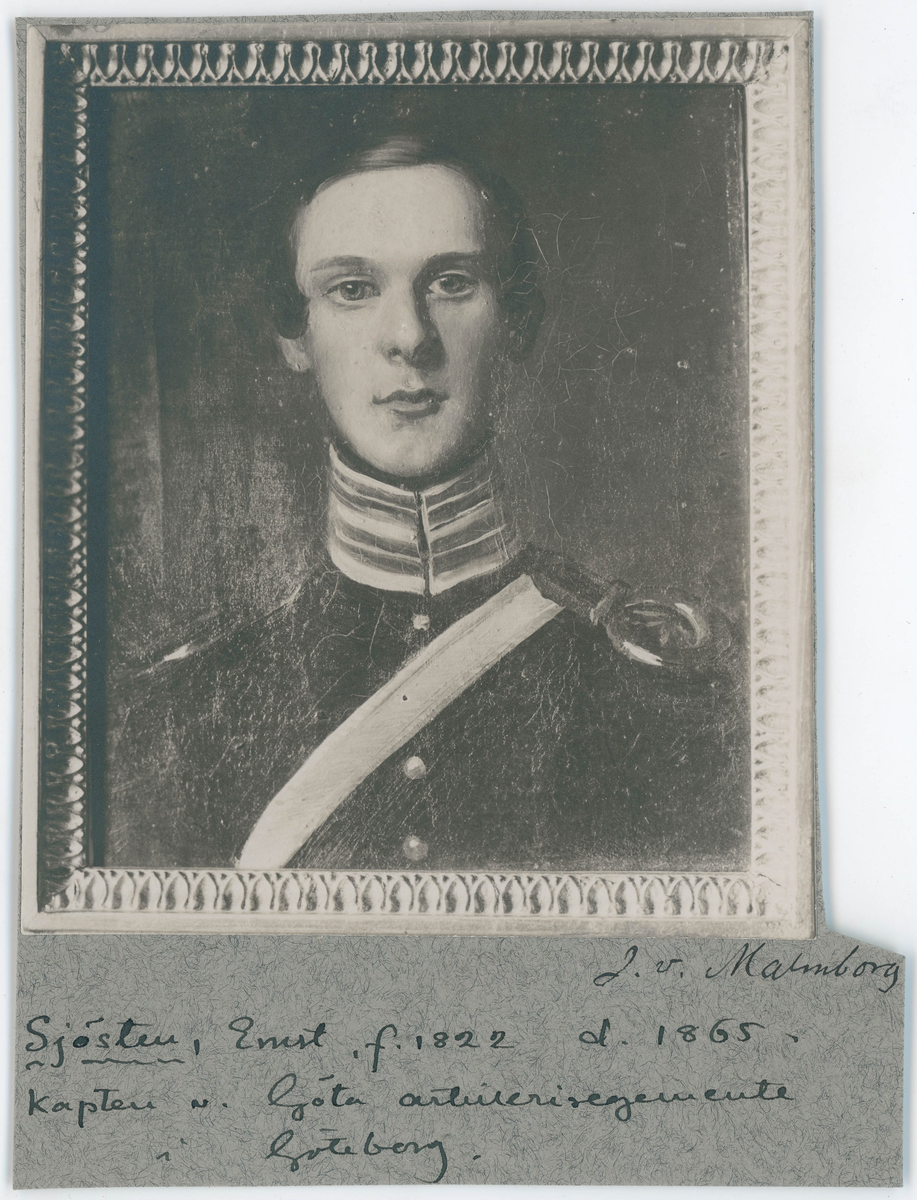 J. v. Malmborg
Sjösten, Ernst, f. 1822 d. 1865.
Kapten v. Göta artilleriregemente
i Göteborg.